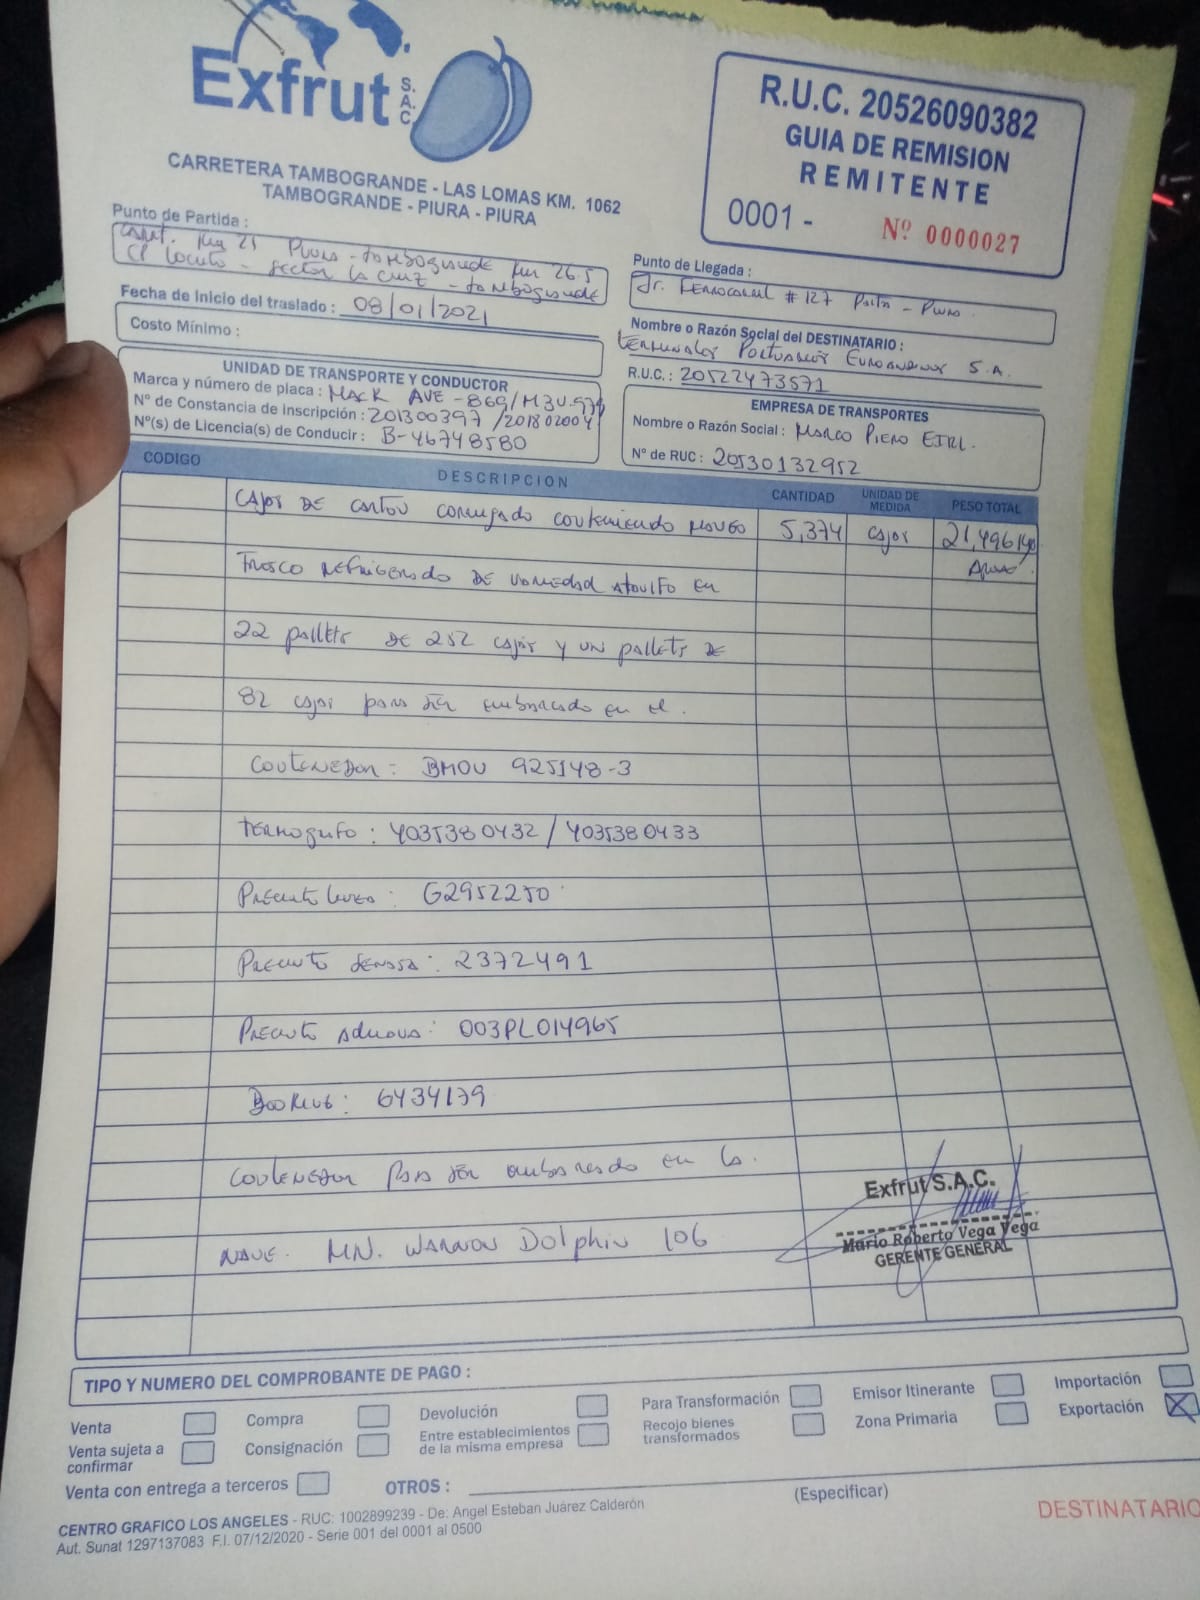 Exfrut S.A.C.
CARRETERA TAMBOGRANDE - LAS LOMAS KM. 1062
TAMBOGRANDE - PIURA - PIURA
R.U.C. 20526090382
GUIA DE REMISION
REMITENTE
0001 - Nº 0000027
Punto de Partida :
Carret. Km 21 Piura - tambogrande km 26.5
CP Locuto - sector la cruz - tambogrande
Punto de Llegada :
Jr. Ferrocarril # 127 Paita - Piura
Fecha de Inicio del traslado : 08/01/2021
Costo Mínimo :
Nombre o Razón Social del DESTINATARIO :
terminales Portuarios Euroandinos S.A.
R.U.C. : 20522473571
UNIDAD DE TRANSPORTE Y CONDUCTOR
Marca y número de placa : MACK AVE - 869/M3U-974
Nº de Constancia de Inscripción : 201300397 / 201802004
Nº(s) de Licencia(s) de Conducir : B-46748580
EMPRESA DE TRANSPORTES
Nombre o Razón Social : Marco Piero EIRL.
Nº de RUC : 20530132952
CODIGO DESCRIPCION CANTIDAD UNIDAD DE MEDIDA PESO TOTAL
Cajas de carton corrugado conteniendo mango 5,374 cajas 21,496 kg
Fresco refrigerado de variedad ataulfo en Aprox.
22 pallets de 252 cajas y un pallets de
82 cajas para ser embarcado en el.
Contenedor : BMOU 925148-3
termografo : 4035380432 / 4035380433
Precinto linea : G2952250
Precinto senasa : 2372491
Precinto Aduana : 003PL014965
Booking : 6434179
Contenedor para ser embarcado en la.
nave. MN. WARNOW Dolphin 106
Exfrut S.A.C.
Mario Roberto Vega Vega
GERENTE GENERAL
TIPO Y NUMERO DEL COMPROBANTE DE PAGO :
Venta Compra Devolución Para Transformación Emisor Itinerante Importación
Venta sujeta a confirmar Consignación Entre establecimientos de la misma empresa Recojo bienes transformados Zona Primaria Exportación X
Venta con entrega a terceros OTROS :
(Especificar)
CENTRO GRAFICO LOS ANGELES - RUC: 1002899239 - De: Angel Esteban Juárez Calderón
Aut. Sunat 1297137083 F.I. 07/12/2020 - Serie 001 del 0001 al 0500
DESTINATARIO